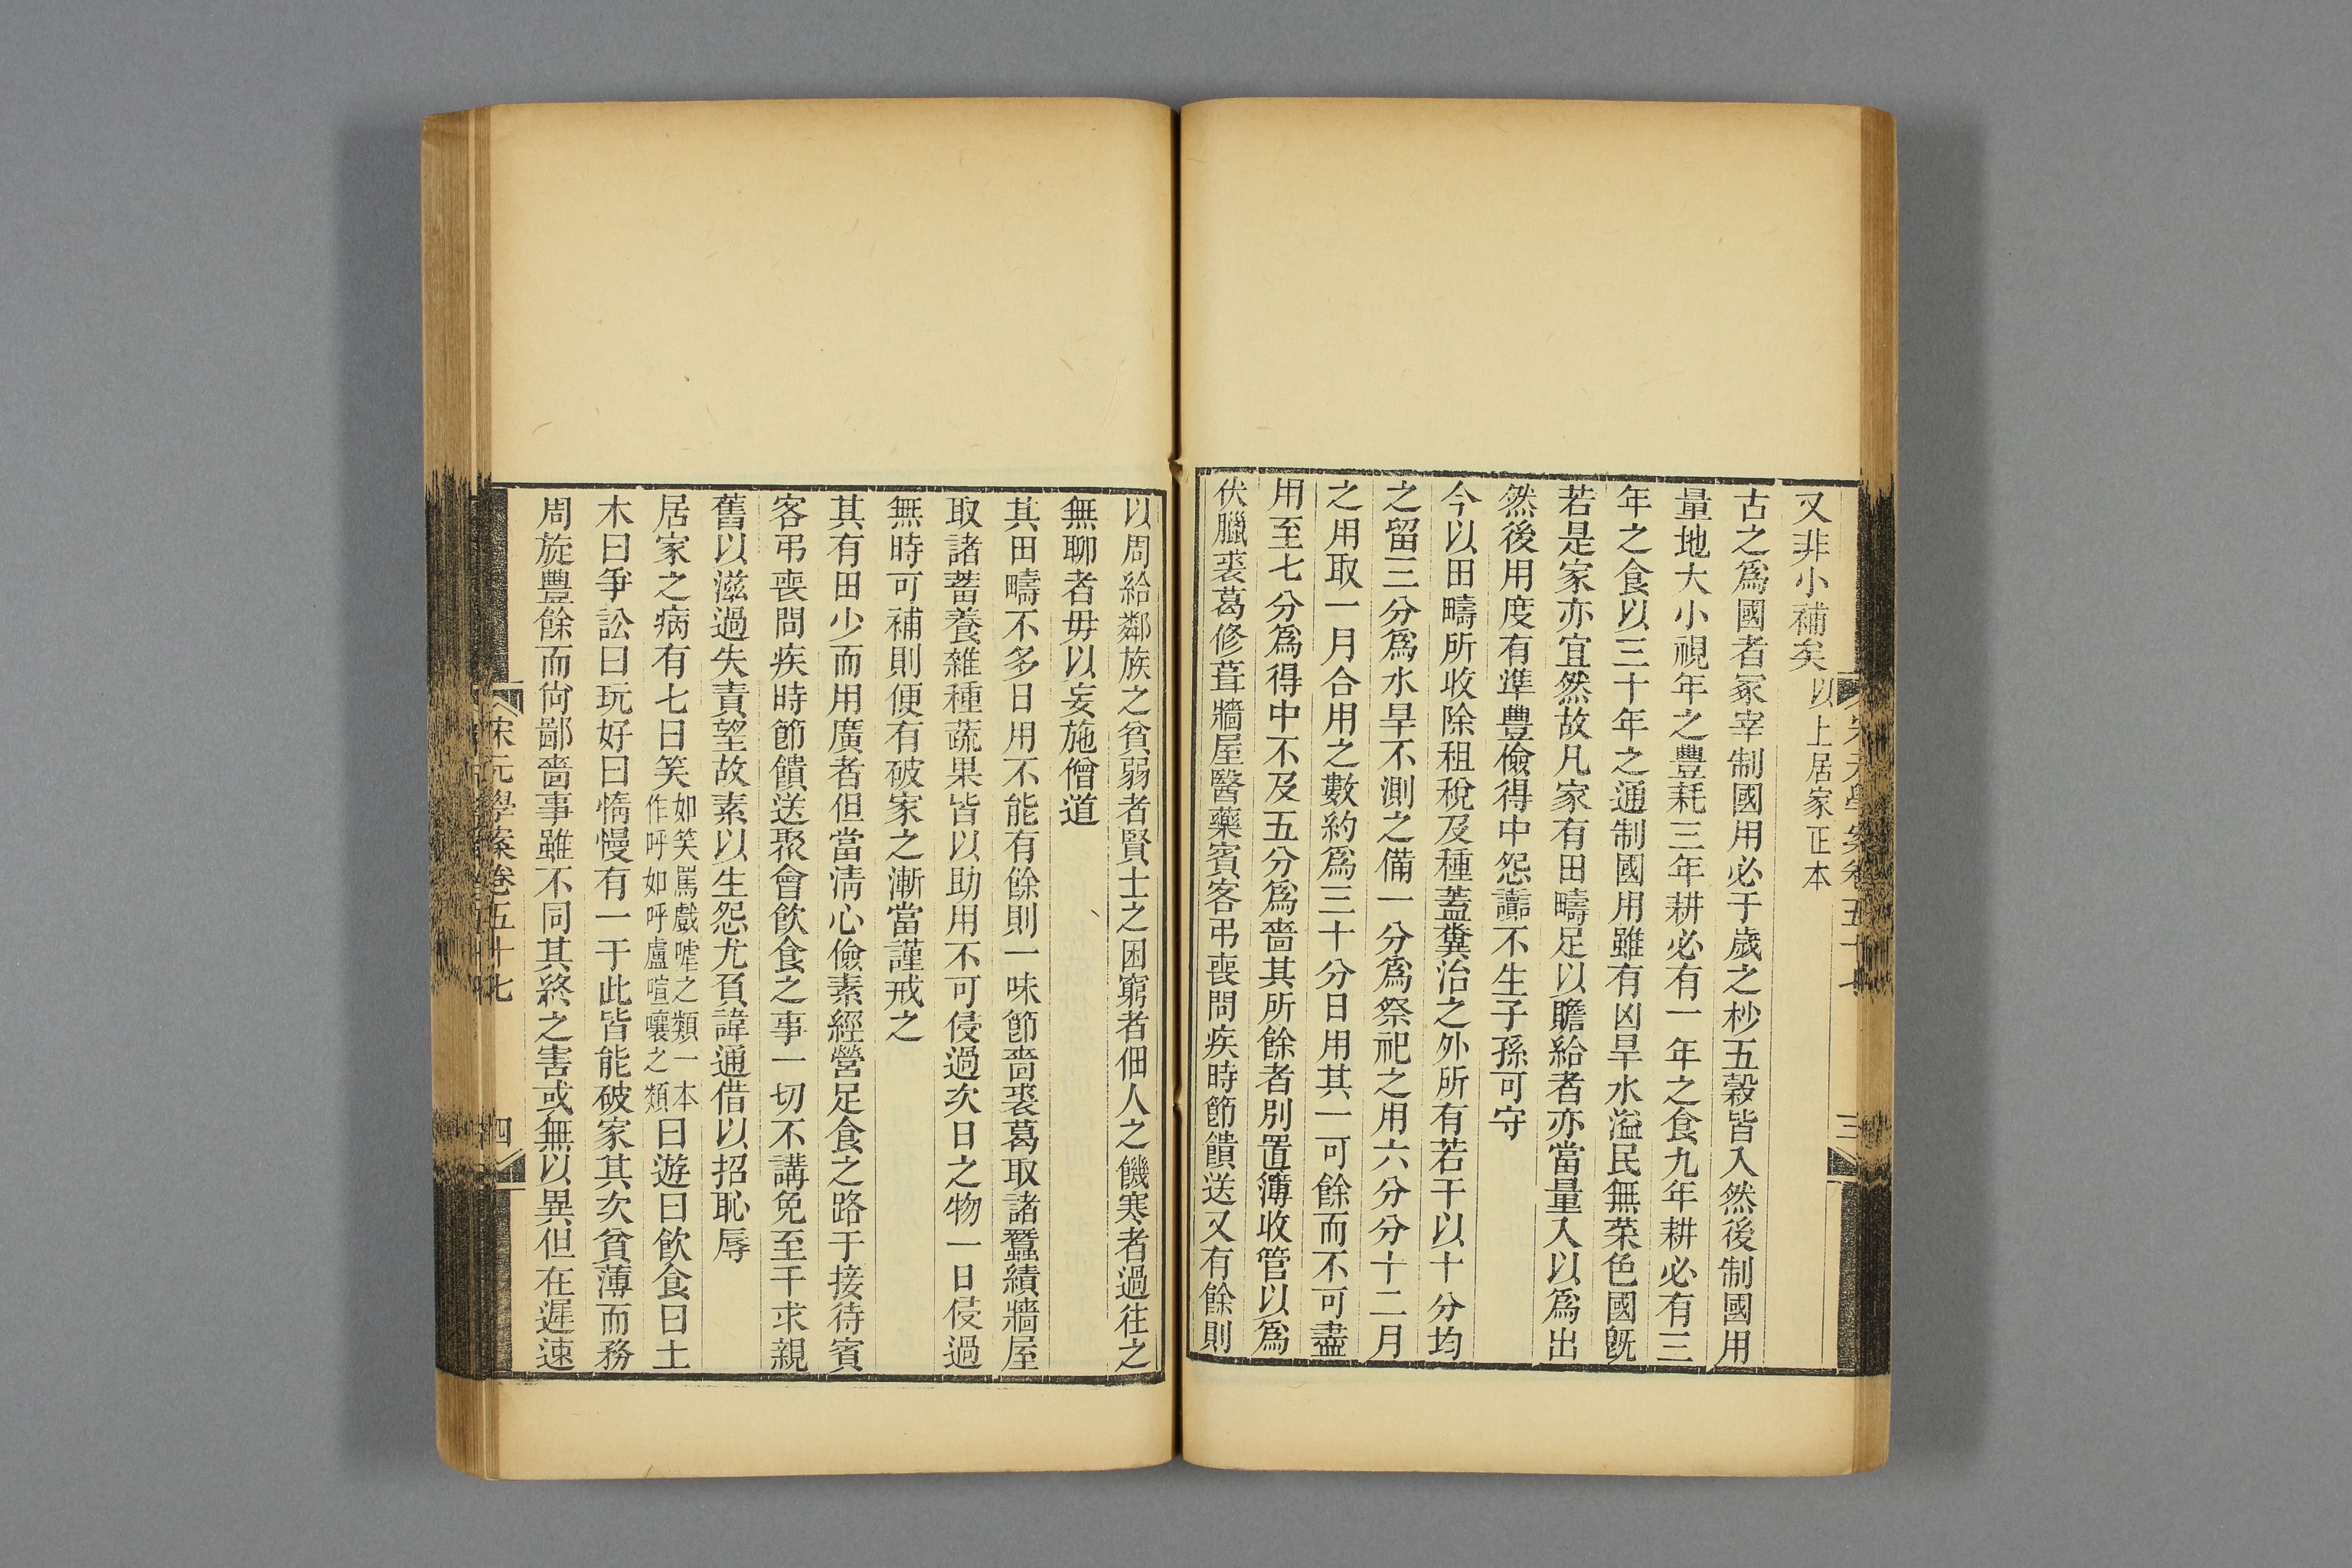 宋元學案卷五十七
三
又非小補矣以上居家正本
古之爲國者冢宰制國用必于歲之杪五穀皆入然後制國用
量地大小視年之豐耗三年耕必有一年之食九年耕必有三
年之食以三十年之通制國用雖有凶旱水溢民無菜色國旣
若是家亦宜然故凡家有田疇足以贍給者亦當量入以爲出
然後用度有準豐儉得中怨讟不生子孫可守
今以田疇所收除租稅及種蓋糞治之外所有若干以十分均
之留三分爲水旱不測之備一分爲祭祀之用六分分十二月
之用取一月合用之數約爲三十分日用其一可餘而不可盡
用至七分爲得中不及五分爲嗇其所餘者別置簿收管以爲
伏臘裘葛修葺牆屋醫藥賓客弔喪問疾時節饋送又有餘則
以周給鄰族之貧弱者賢士之困窮者佃人之饑寒者過往之
無聊者毋以妄施僧道
其田疇不多日用不能有餘則一味節嗇裘葛取諸蠶績牆屋
取諸蓄養雜種蔬果皆以助用不可侵過次日之物一日侵過
無時可補則便有破家之漸當謹戒之
其有田少而用廣者但當淸心儉素經營足食之路于接待賓
客弔喪問疾時節饋送聚會飲食之事一切不講免至干求親
舊以滋過失責望故素以生怨尤負諱通借以招恥辱
居家之病有七曰笑如笑罵戲噱之類一本作呼如呼盧喧嚷之類曰遊曰飲食曰土
木曰爭訟曰玩好曰惰慢有一于此皆能破家其次貧薄而務
周旋豐餘而尙鄙嗇事雖不同其終之害或無以異但在遲速
宋元學案卷五十七
四